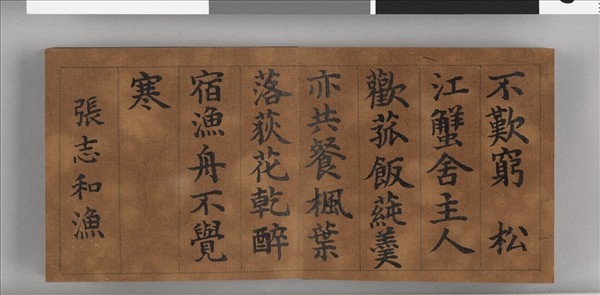 不歎窮　松
江蟹舍主人
歡菰飯蒓羹
亦共餐楓葉
落荻花乾醉
宿漁舟不覺
寒
張志和漁